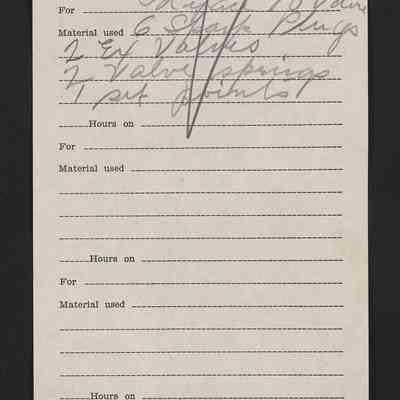 For
Material used 6 Spark Plugs
2 Ex Valves
2 Valve springs
1 set points
Hours on
For
Material used
Hours on
For
Material used
Hours on